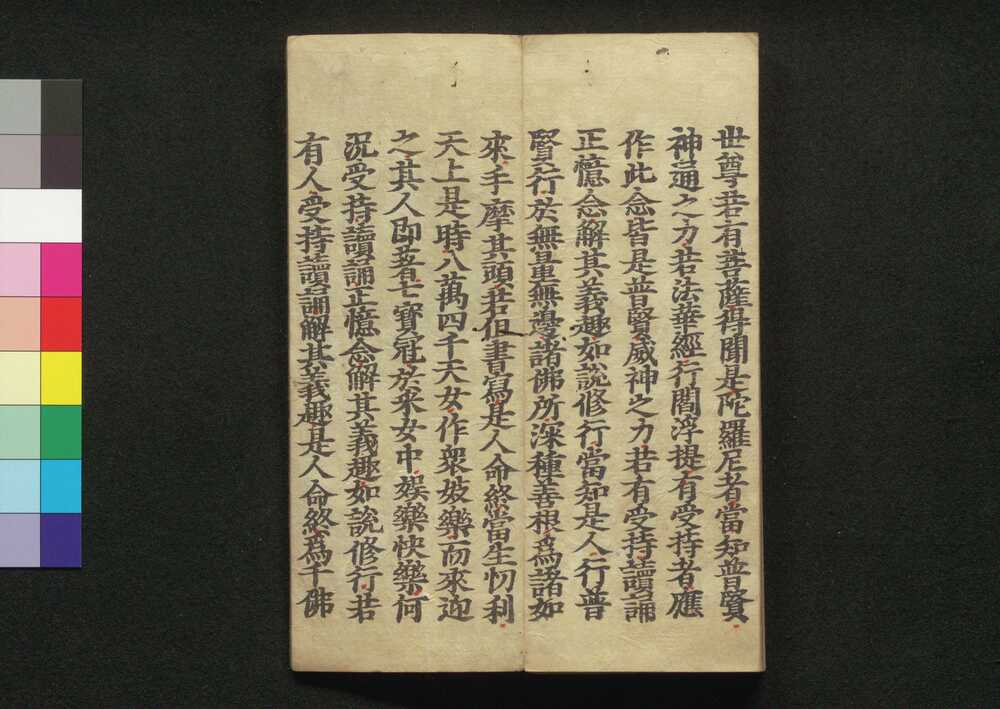 世尊若有菩薩得聞是陀羅尼者當知普賢
神通之力若法華經行閻浮提有受持者應
作此念皆是普賢威神之力若有受持讀誦
正憶念解其義趣如說修行當知是人行普
賢行於無量無邊諸佛所深種善根為諸如
來手摩其頭若但書寫是人命終當生忉利
天上是時八萬四千天女作衆妓樂而來迎
之其人即著七寶冠於采女中娛樂快樂何
況受持讀誦正憶念解其義趣如說修行若
有人受持讀誦解其義趣是人命終為千佛